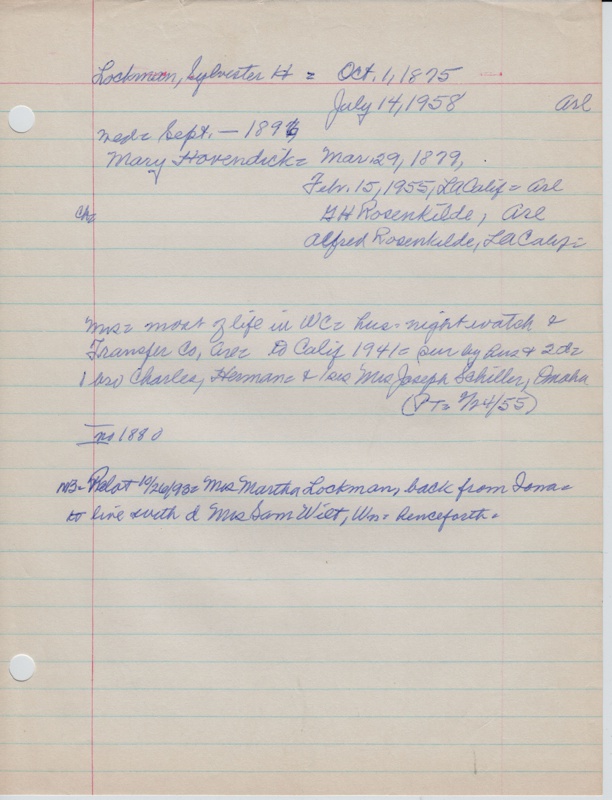 Lockman, Sylvester H = Oct. 1, 1875
July 14, 1958 Arl
wed = Sept. – 1896
Mary Hovendick = Mar. 29, 1879,
Febr. 15, 1955, LA Calif = Arl
Ch = G H Rosenkilde, Arl
Alfred Rosenkilde, LA Calif =
Mrs = most of life in WC = hus = night watch &
Transfer Co, Are = to Calif 1941 = sur by hus & 2 d =
1 bro Charles, Herman = & 1 sis Mrs Joseph Schiller, Omaha
(PT = 2/24/55)
no 1880
NB = Pilot 10/26/93 = Mrs Martha Lockman, back from Iowa =
to live with d Mrs Sam Wilt, Wn = henceforth =